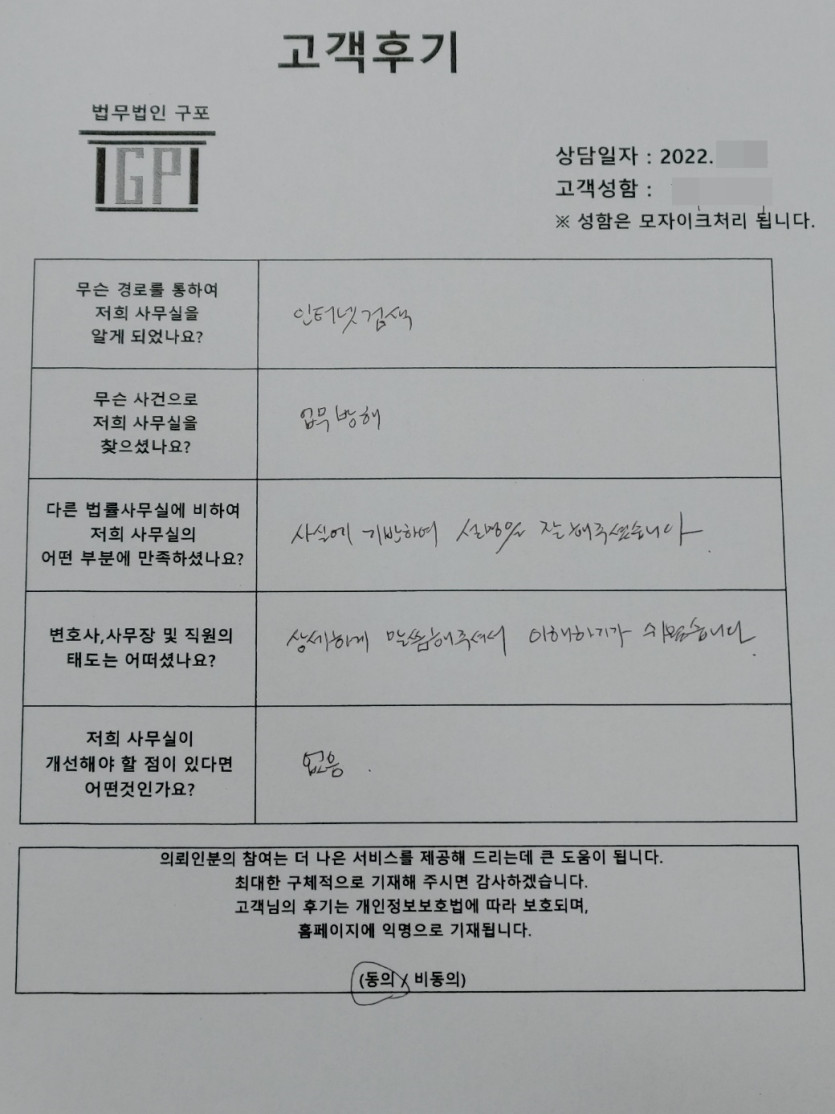 고객후기
법무법인 구포
GP
상담일자 : 2022.
고객성함 :
※ 성함은 모자이크처리 됩니다.
무슨 경로를 통하여
저희 사무실을
알게 되었나요?
인터넷검색
무슨 사건으로
저희 사무실을
찾으셨나요?
업무방해
다른 법률사무실에 비하여
저희 사무실의
어떤 부분에 만족하셨나요?
사실에 기반하여 설명을 잘해주셨습니다.
변호사,사무장 및 직원의
태도는 어떠셨나요?
상세하게 말씀해주셔서 이해하기가 쉬웠습니다.
저희 사무실이
개선해야 할 점이 있다면
어떤것인가요?
없음.
의뢰인분의 참여는 더 나은 서비스를 제공해 드리는데 큰 도움이 됩니다.
최대한 구체적으로 기재해 주시면 감사하겠습니다.
고객님의 후기는 개인정보보호법에 따라 보호되며,
홈페이지에 익명으로 기재됩니다.
(동의 / 비동의)